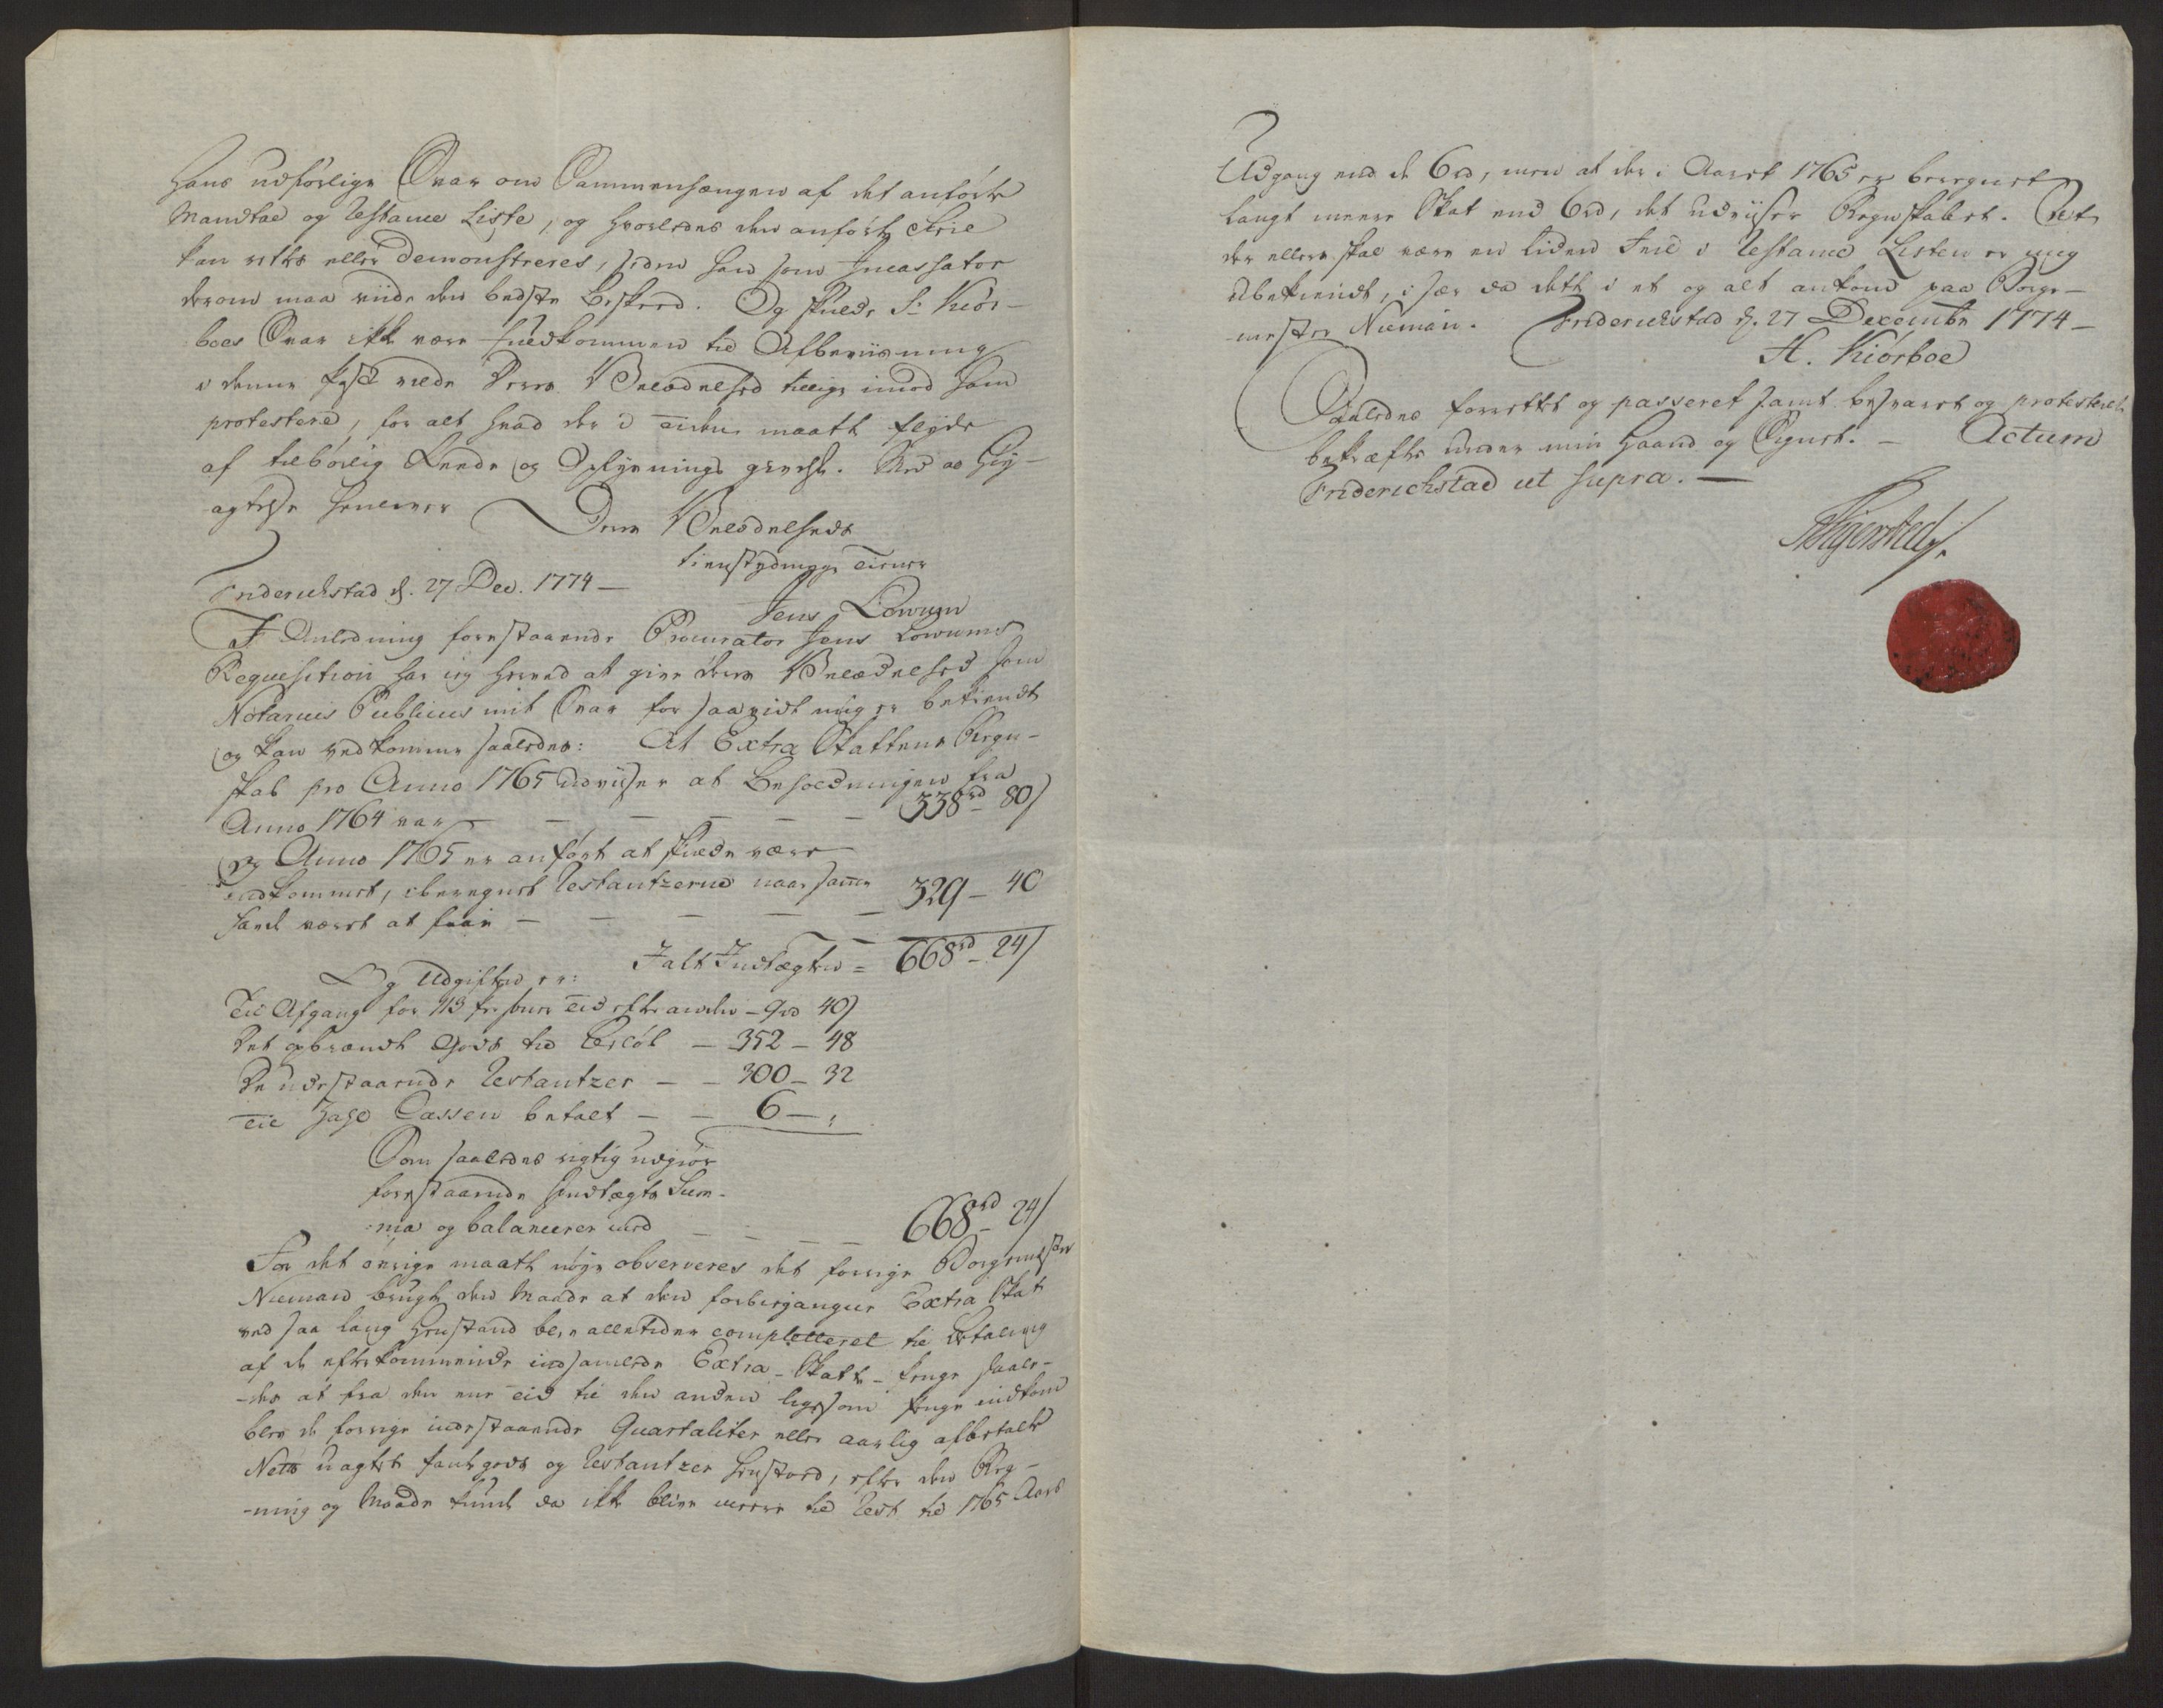 Hans udførlige Svar om Sammenhængen af det anførte
Mandtal og Restance Liste, og hvorledes den anførte Feil
kan rettes eller demonstreres, siden han som Incassator
derom maa viide den bedste Beskeed. Og skulde Sr. Kiør-
boes Svar ikke være fuldkommen til Afbeviisning
i denne Post vilde Deres Velædelhed tillige imod ham
protestere, for alt hvad der i Tiden maatte flyde
af tilbørlig og Oplysnings . Med al Høy-
agtelse henlever Deres Velædelheds
tienstydmyge Tiener
Friderichstad d. 27 Dec. 1774 -
Jens Lowum
I Anledning forestaaende Procurator Jens Lowums
Requesition har ieg herved at give deres Velædelhed som
Notarius Publicus mit Svar for saavidt mig er bekiendt
og kan vedkomme saaledes: At Extra Skattens Regn-
skab pro Anno 1765 udviiser at Beholdningen fra
Anno 1764 var - - - - - - 338rd 80s
Og Anno 1765 er anført at skulde være
indkommet, iberegnet Restantzerne naar samme
havde været at faae - - - - - 329 - 40
I alt Indtægten = 668rd - 24s
Og Udgiften er:
Til Afgang for 113 personer Tid efter anden - 9rd 40s
Det opbrændte Gods til Beløb - 352 - 48
De udestaaende Restantzer - - 300 - 32
Til Zahl Cassen betalt - - 6 - ,
Som saaledes rigtig udgiør
forestaaende Indtægts Sum-
ma og balancerer med - - - - 668rd - 24s
For det øvrige maatte nøye observeres det forrige Borgemester
Nieman brugte den Maade at den forbigangne Extra Skat
ved saa lang Henstand blev alletider completteret til Betaling
af de efterkommende indsamlede Extra-Skatte-Penge saale-
-des at fra den eene Tid til den anden ligesom Penge indkom
blev de forrige indestaaende Quartaliter eller aarlig afbetalt
Netto uagtet pantegods og Restantzer henstoed, efter den Reg-
-ning og Maade kunde da ikke blive meere til Rest til 1765 Aars
Udgang end de 6rd, men at der i Aaret 1765 er beregnet
langt meere Skat end 6rd, det udviiser Regnskabet. At
der ellers skal være en liden Feil i Restance Listen er mig
ubekiendt, i sær da dette i et og alt ankom paa Borge-
-mester Nieman. Friderichstad d. 27 Decembr 1774 -
H. Kiørboe
Saaledes forrettet og passeret samt besvaret og protesteret
bekræftes under min Haand og Signet. - Actum
Friderichstad ut supra. -